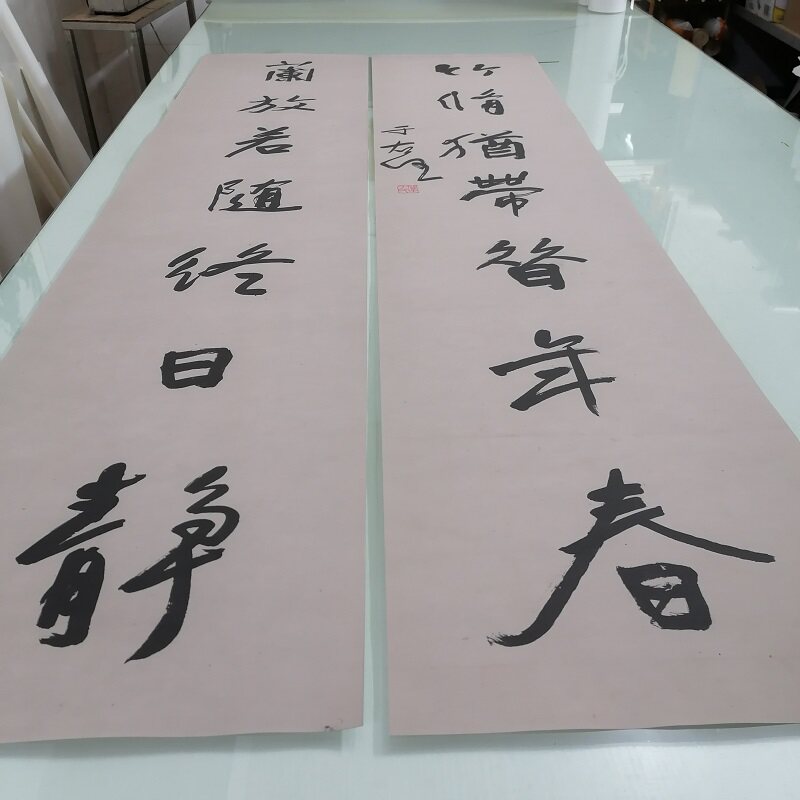 蘭放若隨終日靜
竹情猶帶昔年春
于右任